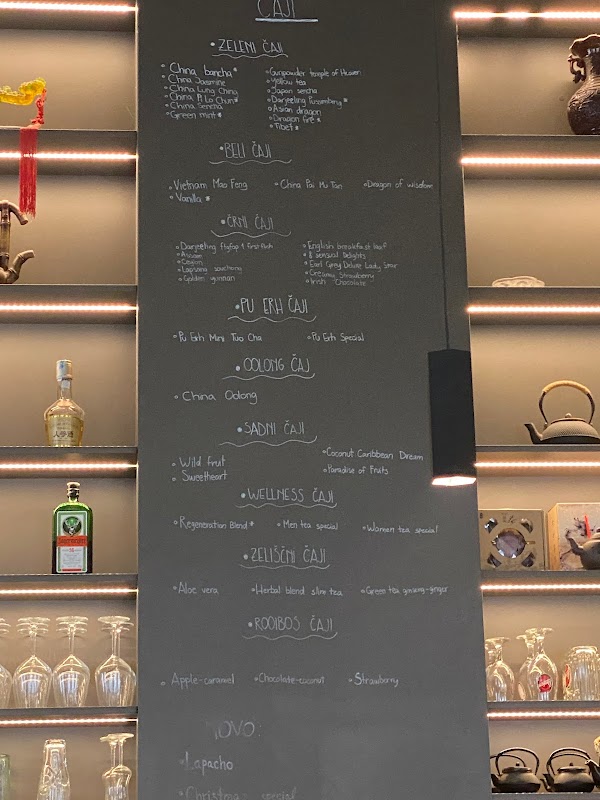 ČAJI
• ZELENI ČAJI
• China bancha*
• China Jassmine
• China Lung Ching
• China Pi Lo Chun*
• China Sencha
• Green mint*
• Gunpowder temple of Heaven
• Yellow tea
• Japan sencha
• Darjeeling Pussimbing*
• Asian dragon
• Dragon fire*
• Tibet*
• BELI ČAJI
• Vietnam Mao Feng
• Vanilla*
• China Pai Mu Tan
• Dragon of wisdom
• ČRNI ČAJI
• Darjeeling ftgfop 1 first flush
• Assam
• Ceylon
• Lapsang souchong
• Golden yunnan
• English breakfast leaf
• 8 sensual delights
• Earl Grey Deluxe Lady Star
• Creamy Strawberry
• Irish Chocolate
• PU ERH ČAJI
• Pu Erh Mini Tuo Cha
• Pu Erh Special
• OOLONG ČAJ
• China Oolong
• SADNI ČAJI
• Wild fruit
• Sweetheart
• Coconut Caribbean Dream
• Paradise of Fruits
• WELLNESS ČAJI
• Regeneration Blend*
• Men tea special
• Woman tea special
• ZELIŠČNI ČAJI
• Aloe vera
• Herbal blend slim tea
• Green tea ginseng-ginger
• ROOIBOS ČAJI
• Apple-caramel
• Chocolate-coconut
• Strawberry
NOVO:
• Lapacho
• Christmas special